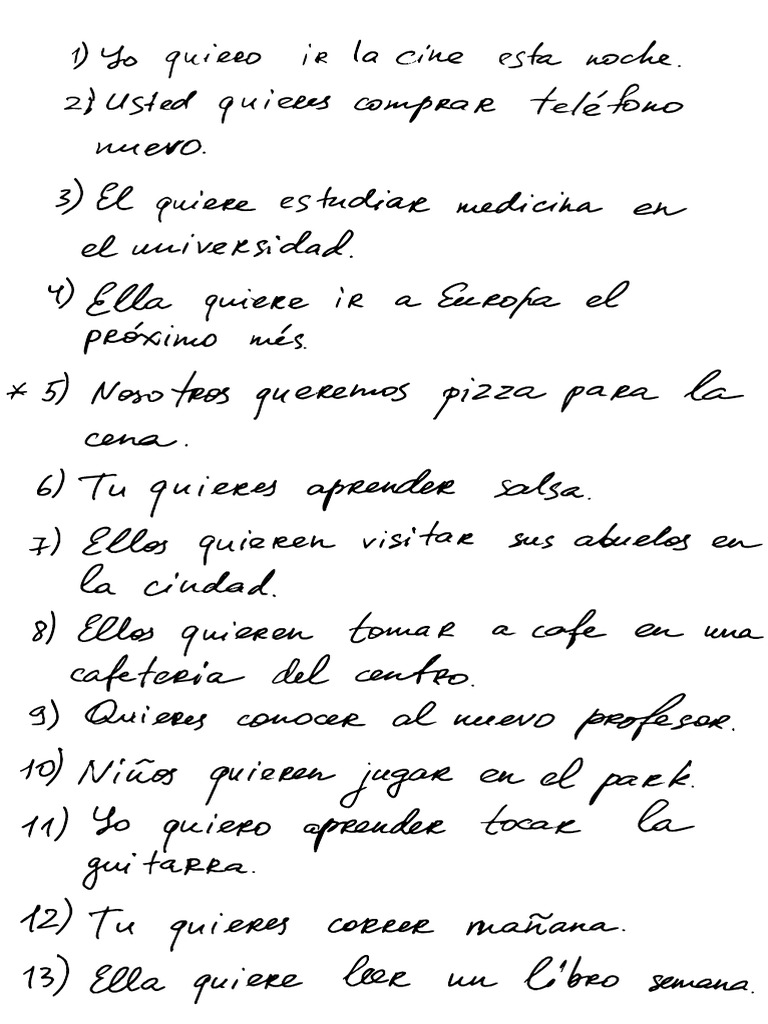 1) Yo quiero ir la cine esta noche.
2) Usted quieres comprar teléfono
nuevo.
3) El quiere estudiar medicina en
el universidad.
4) Ella quiere ir a Europa el
próximo més.
* 5) Nosotros queremos pizza para la
cena.
6) Tu quieres aprender salsa.
7) Ellos quieren visitar sus abuelos en
la ciudad.
8) Ellos quieren tomar a cafe en una
cafeteria del centro.
9) Quieres conocer al nuevo profesor.
10) Niños quieren jugar en el park.
11) Yo quiero aprender tocar la
guitarra.
12) Tu quieres correr mañana.
13) Ella quiere leer un líbro semana.